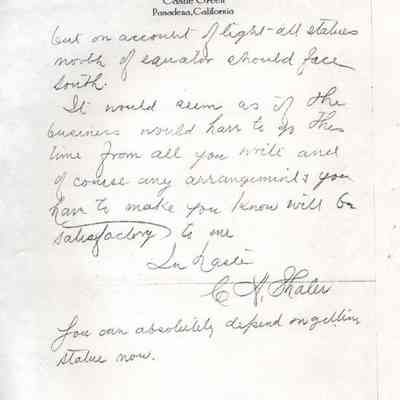 Castle Green
Pasadena, California
but on account of light - all statues
north of equator should face
south.
It would seem as if the
business would have to go this
time from all you write and
of course any arrangements you
have to make you know will be
satisfactory to me
In haste
C H Thaler
You can absolutely depend on getting
statue now.